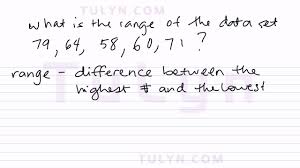 TULYN.COM
what is the range of the data set
79, 64, 58, 60, 71 ?
range - difference between the
highest # and the lowest
Tulyn
TULYN.COM